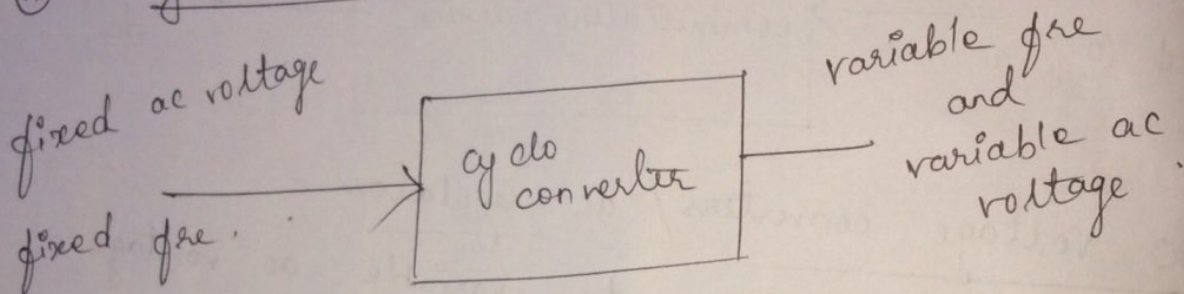 fixed ac voltage
fixed fre.
cyclo
converter
variable fre
and
variable ac
voltage